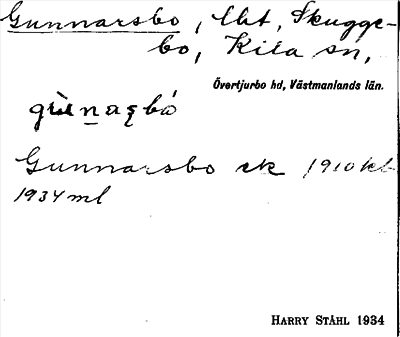 Gunnarsbo, lht, Skugge-
bo, Kila sn,
Övertjurbo hd, Västmanlands län.
Gunnarsbo ek 1910 kbl
1934 ml
HARRY STÅHL 1934